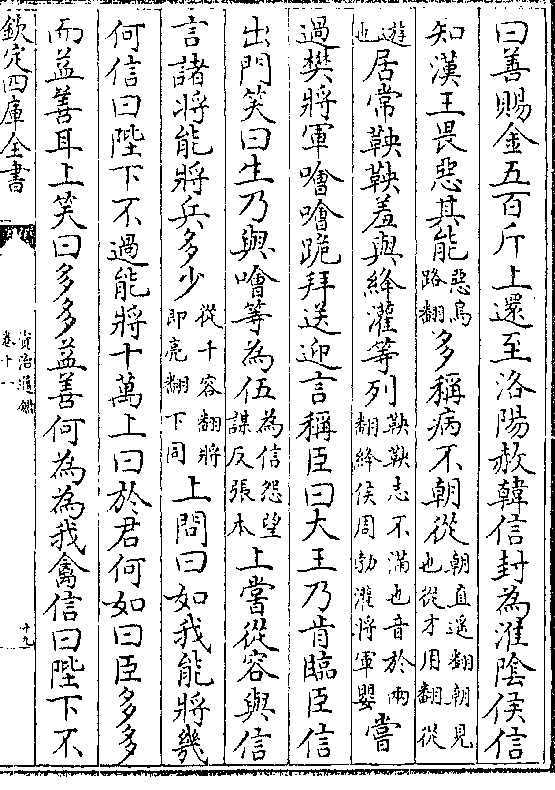 曰善賜金五百斤上還至洛陽赦韓信封為淮隂侯信
知漢王畏惡其能惡烏路翻多稱病不朝從朝直遥翻朝見也從才用翻從
遊也居常鞅鞅羞與絳灌等列鞅鞅志不滿也音於兩翻絳侯周勃灌將軍嬰嘗
過樊將軍噲噲跪拜送迎言稱臣曰大王乃肯臨臣信
出門笑曰生乃與噲等為伍為信怨望謀反張本上嘗從容與信
言諸將能將兵多少從千容翻將即亮翻下同上問曰如我能將幾
何信曰陛下不過能將十萬上曰於君何如曰臣多多
而益善耳上笑曰多多益善何為為我禽信曰陛下不
欽定四庫全書
資治通鑑
卷十一
十九